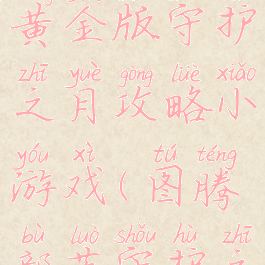 黄金版守护
zhī yuè gòng lüè xiǎo
之月攻略小
yóu xì tú téng
游戏(图腾
bù luò shǒu hù zhī
部落守护之